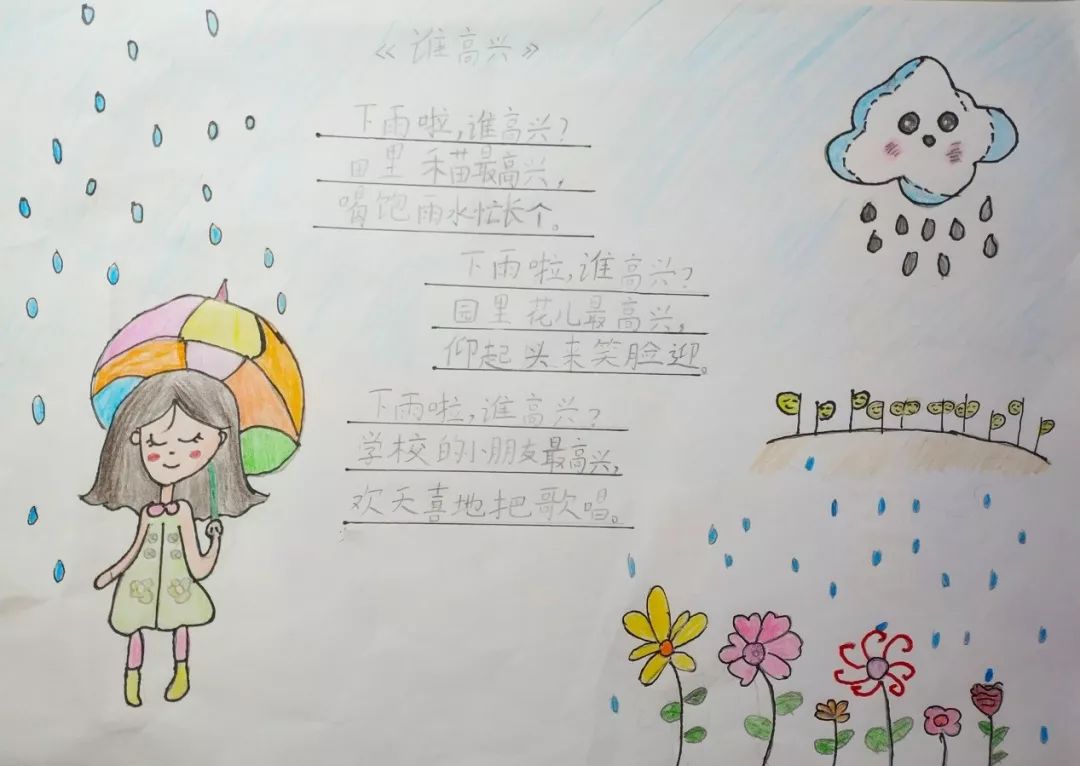 《谁高兴》
下雨啦,谁高兴?
田里禾苗最高兴,
喝饱雨水忙长个。
下雨啦,谁高兴?
园里花儿最高兴,
仰起头来笑脸迎。
下雨啦,谁高兴?
学校的小朋友最高兴,
欢天喜地把歌唱。